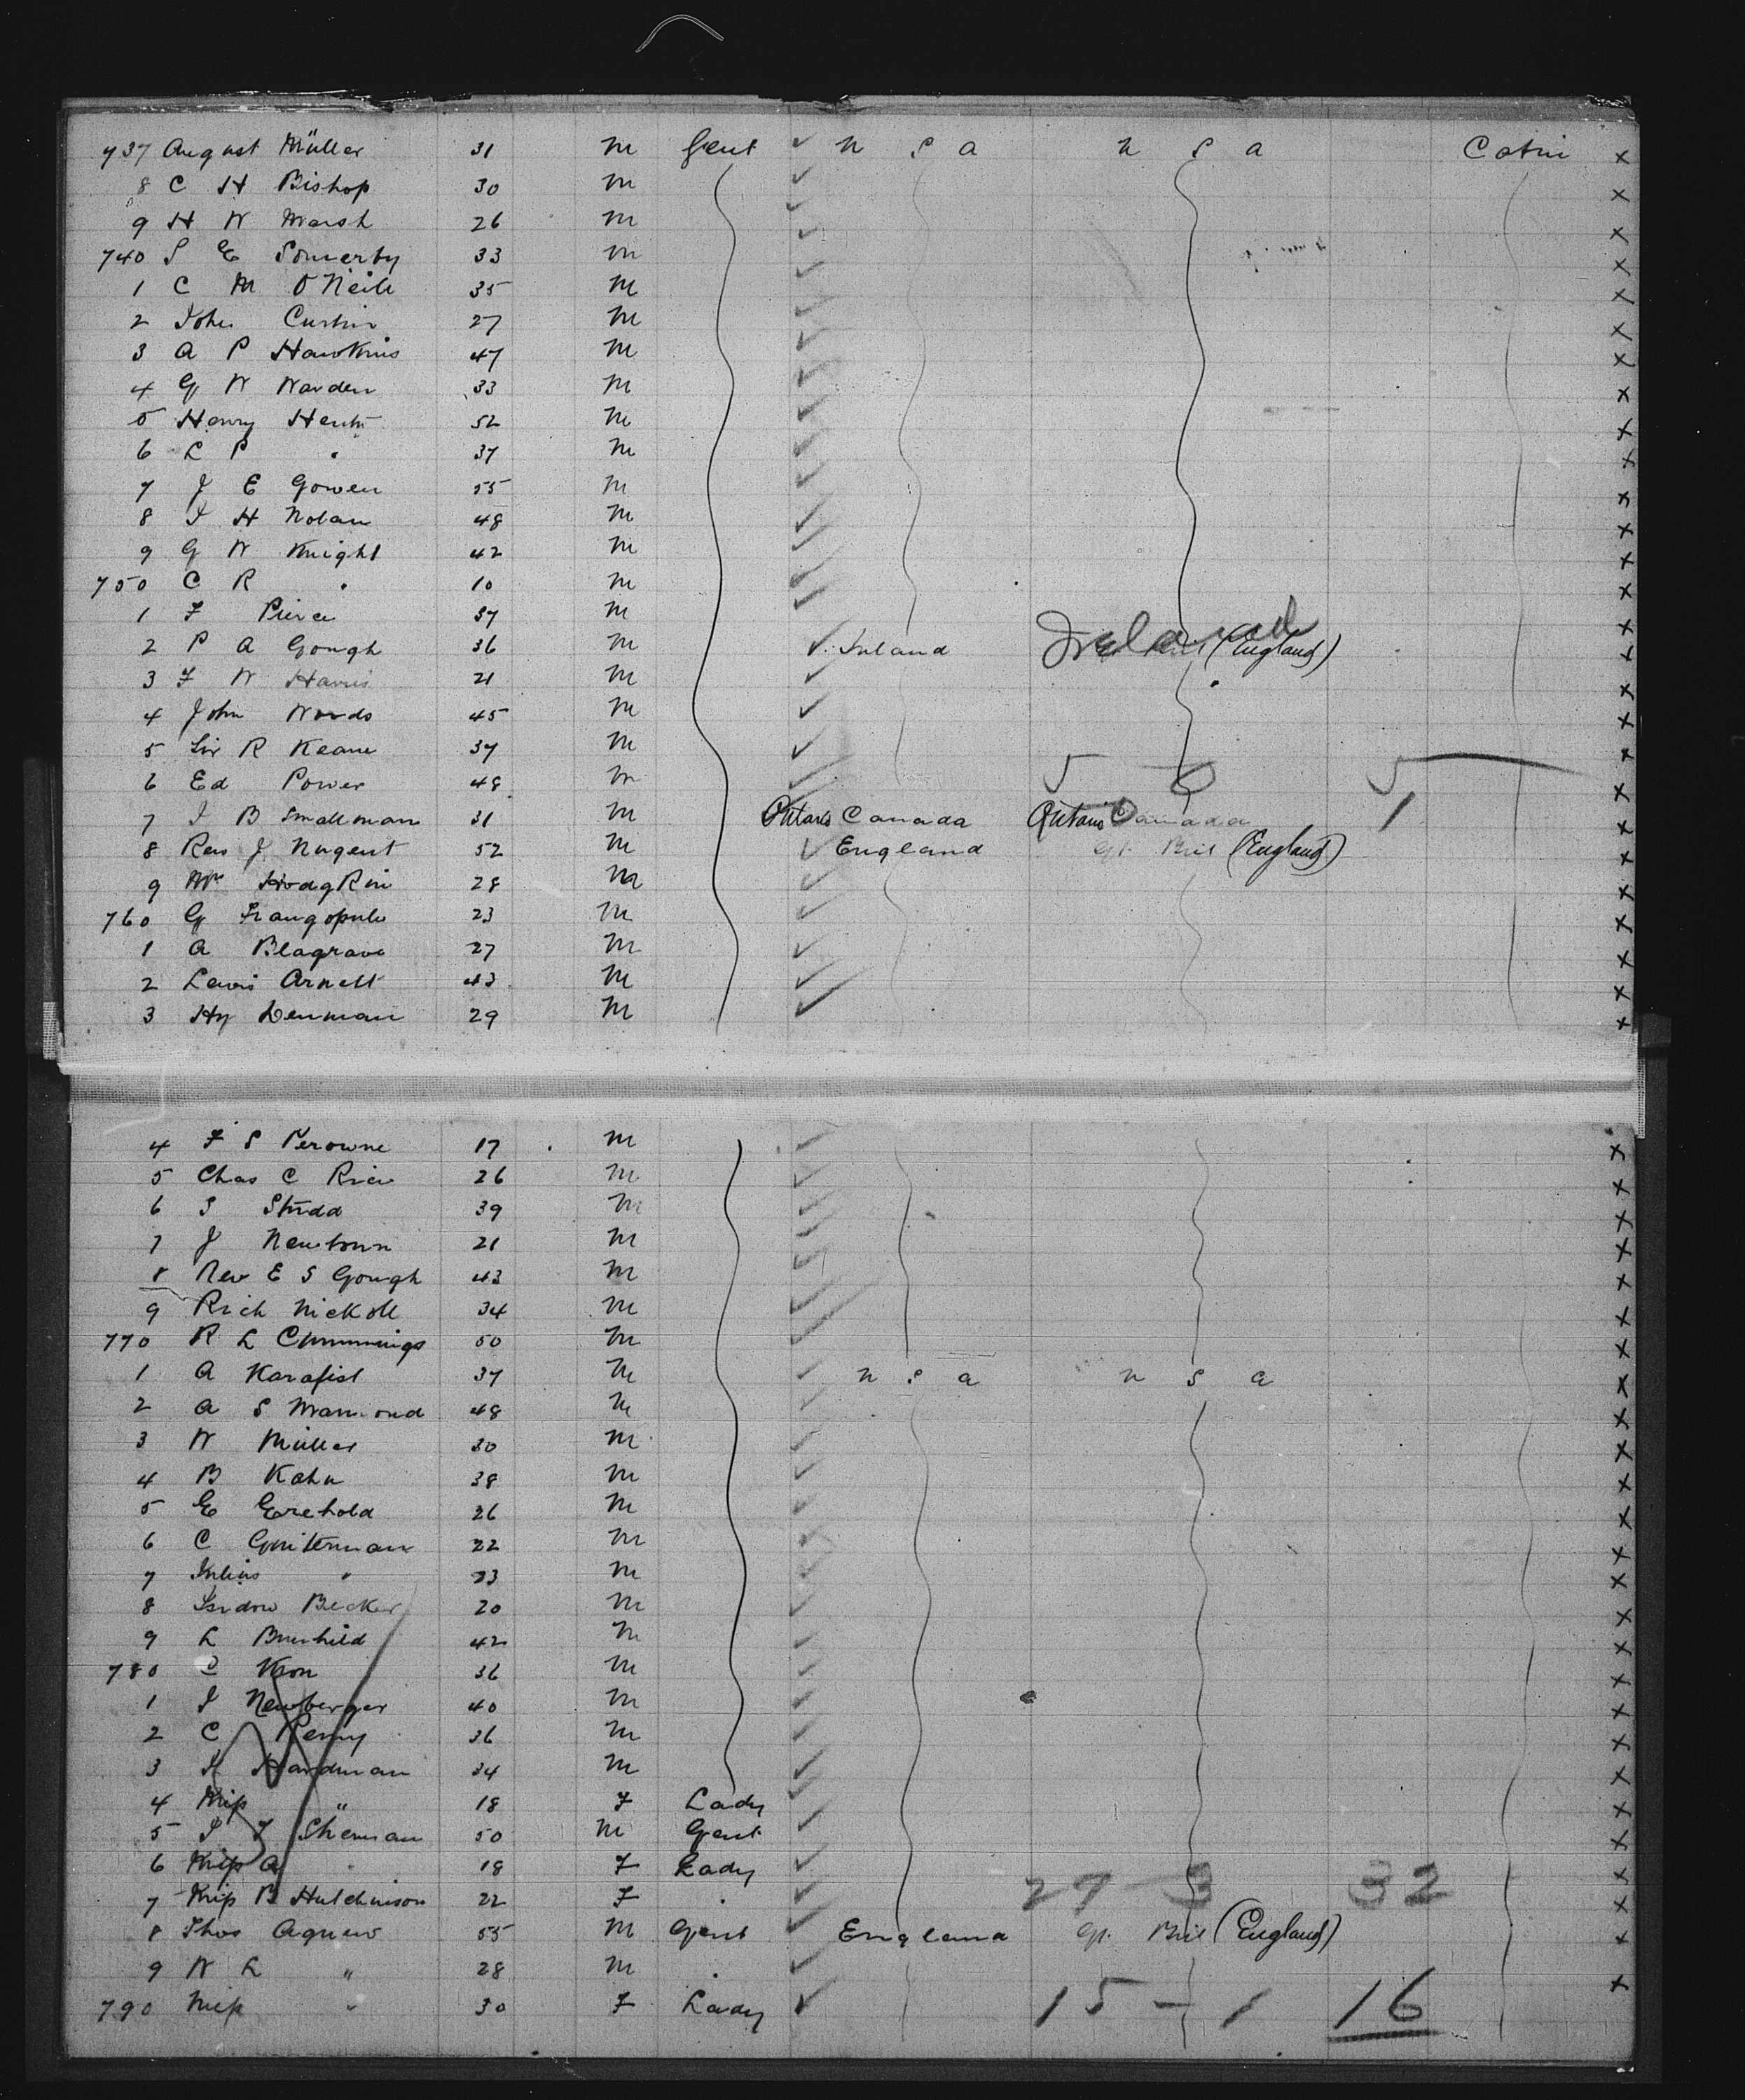 737 August Müller 31 M Gent U S A U S A Cabin X
8 C H Bishop 30 M X
9 H W Marsh 26 M X
740 S E Somerby 33 M X
1 C M O'Neill 35 M X
2 John Curtin 27 M X
3 A P Hawkins 47 M X
4 G W Warden 33 M X
5 Henry 52 M X
6 L P " 37 M X
7 J E Gowen 55 M X
8 J H Nolan 48 M X
9 G W Knight 42 M X
750 C R " 10 M X
1 F Pierce 37 M X
2 P A Gough 36 M Ireland Ireland (England) X
3 F W Harris 21 M X
4 John Woods 45 M X
5 Sir R Keane 37 M X
6 Ed Power 48 M 5 0 5 X
7 J B Smallman 31 M Ontario Canada Ontario Canada 1 X
8 Rev J Nugent 52 M England Gt Brit (England) X
9 Mr Hodgkin 28 M X
760 G Frangopulo 23 M X
1 A Blagrave 27 M X
2 Lewis Arnett 43 M X
3 Hy Denman 29 M X
4 F S Perowne 17 M X
5 Chas C Rice 26 M X
6 S Studd 39 M X
7 J Newtown 21 M X
8 Rev E S Gough 43 M X
9 Rich Nickoll 34 M X
770 R L Cummings 50 M X
1 A Karafist 37 M U S A U S A X
2 A S 48 M X
3 W Müller 30 M X
4 B Kahn 38 M X
5 E 26 M X
6 C Guiterman 22 M X
7 Julius " 23 M X
8 Isidore Becker 20 M X
9 L 42 M X
780 Kron 36 M X
1 I Newberger 40 M X
2 C Perry 36 M X
3 H Hardman 34 M X
4 Miss " 18 F Lady X
5 I T Sherman 50 M Gent X
6 Miss A " 18 F Lady X
7 Miss B Hutchinson 22 F " 29 3 32 X
8 Thos Agnew 55 M Gent England Gt. Brit (England) X
9 W L " 28 M " X
790 Miss " 30 F Lady 15 - 1 16